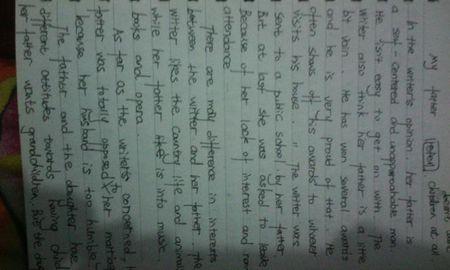 My father
children at all
In the writer's opinion, her father is
a self-centered and unapproachable man.
He isn't easy to get on with. The
writer also think her father is a little
by vain. He has won several awards
and he is very proud of that. He
often shows off his awards to whoever
visits his house. The writer was
sent to a public school by her father
But at last she was asked to leave
Because of her lack of interest and
attendance.
There are many difference in interests
between the writer and her father. The
writer likes the country life and animals
while her father is into music,
books and opera.
As far as the writer's concerned,
father was totally opposed to her marriage
because her husband is too humble
The father and the daughter have
different attitudes towards having child
her father wants grandchildren, But